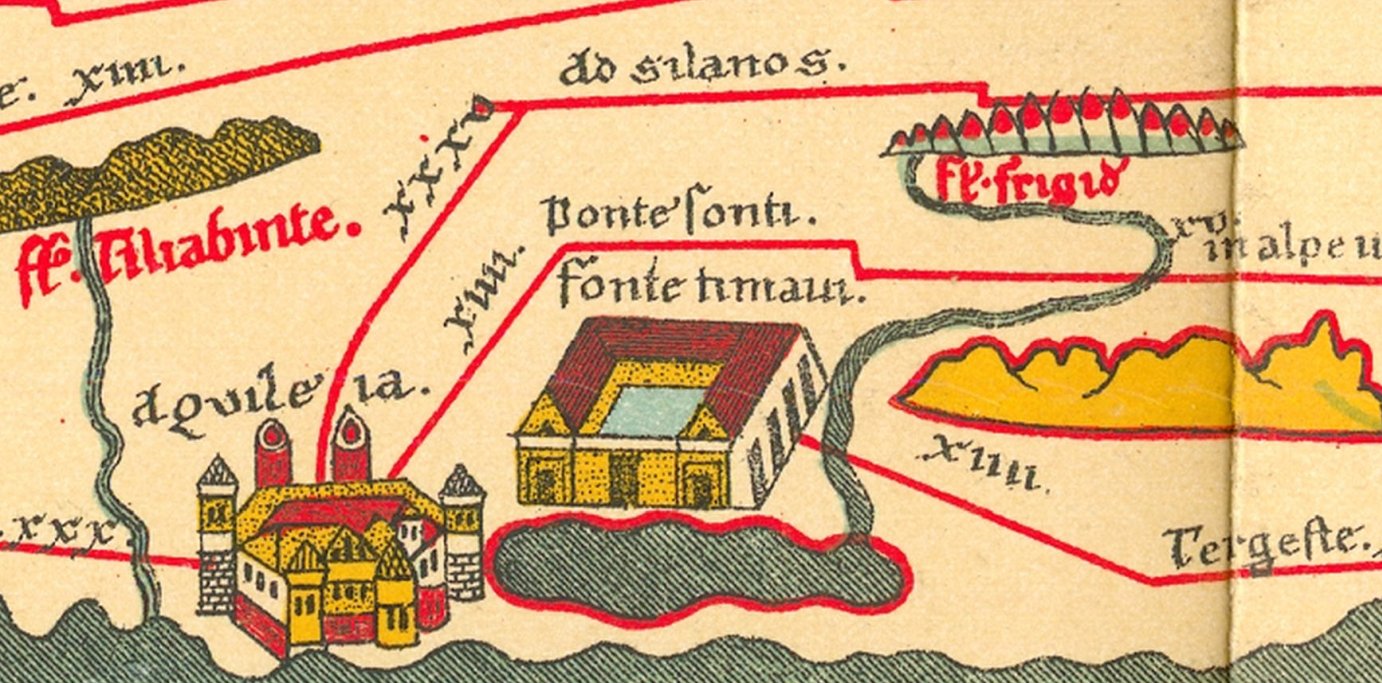 e. xiiii.
ad silanos.
xxxv
fl. frigid
ponte sonti.
fl. Tiliabinte.
xv.
in alpe iu
xiiii.
fonte timaui.
aquileia.
xiiii.
.xxx.
Tergeste.